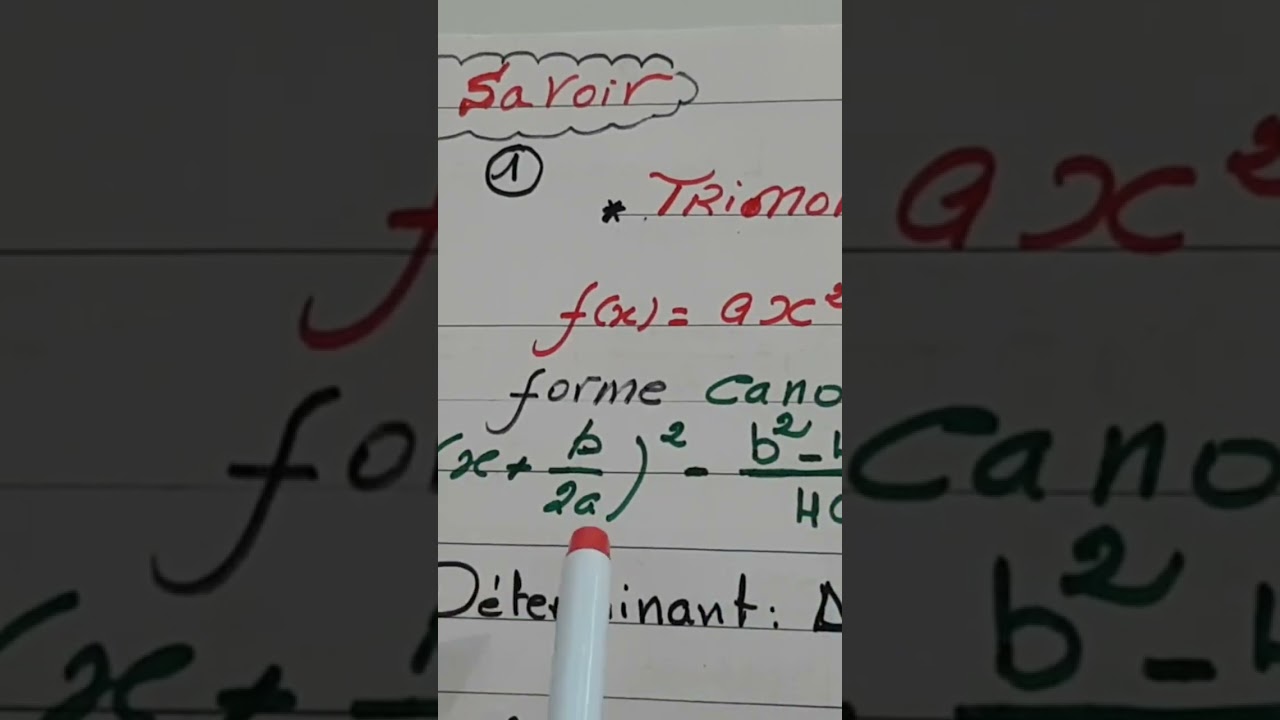 Savoir
①
* TRiNO
f(x) = ax²
forme Cano
(x + b/2a)² - b² -
Déterminant : Δ